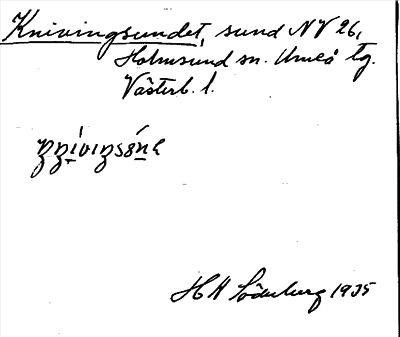 Knivingsundet, sund NV 26,
Holmsund sn. Umeå tg.
Västerb. l.
H H Söderberg 1935